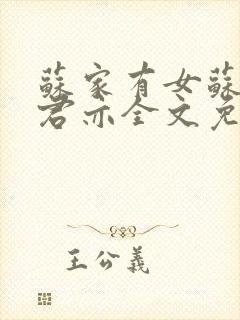 蘇家有女蘇
君亦全文免
王公義